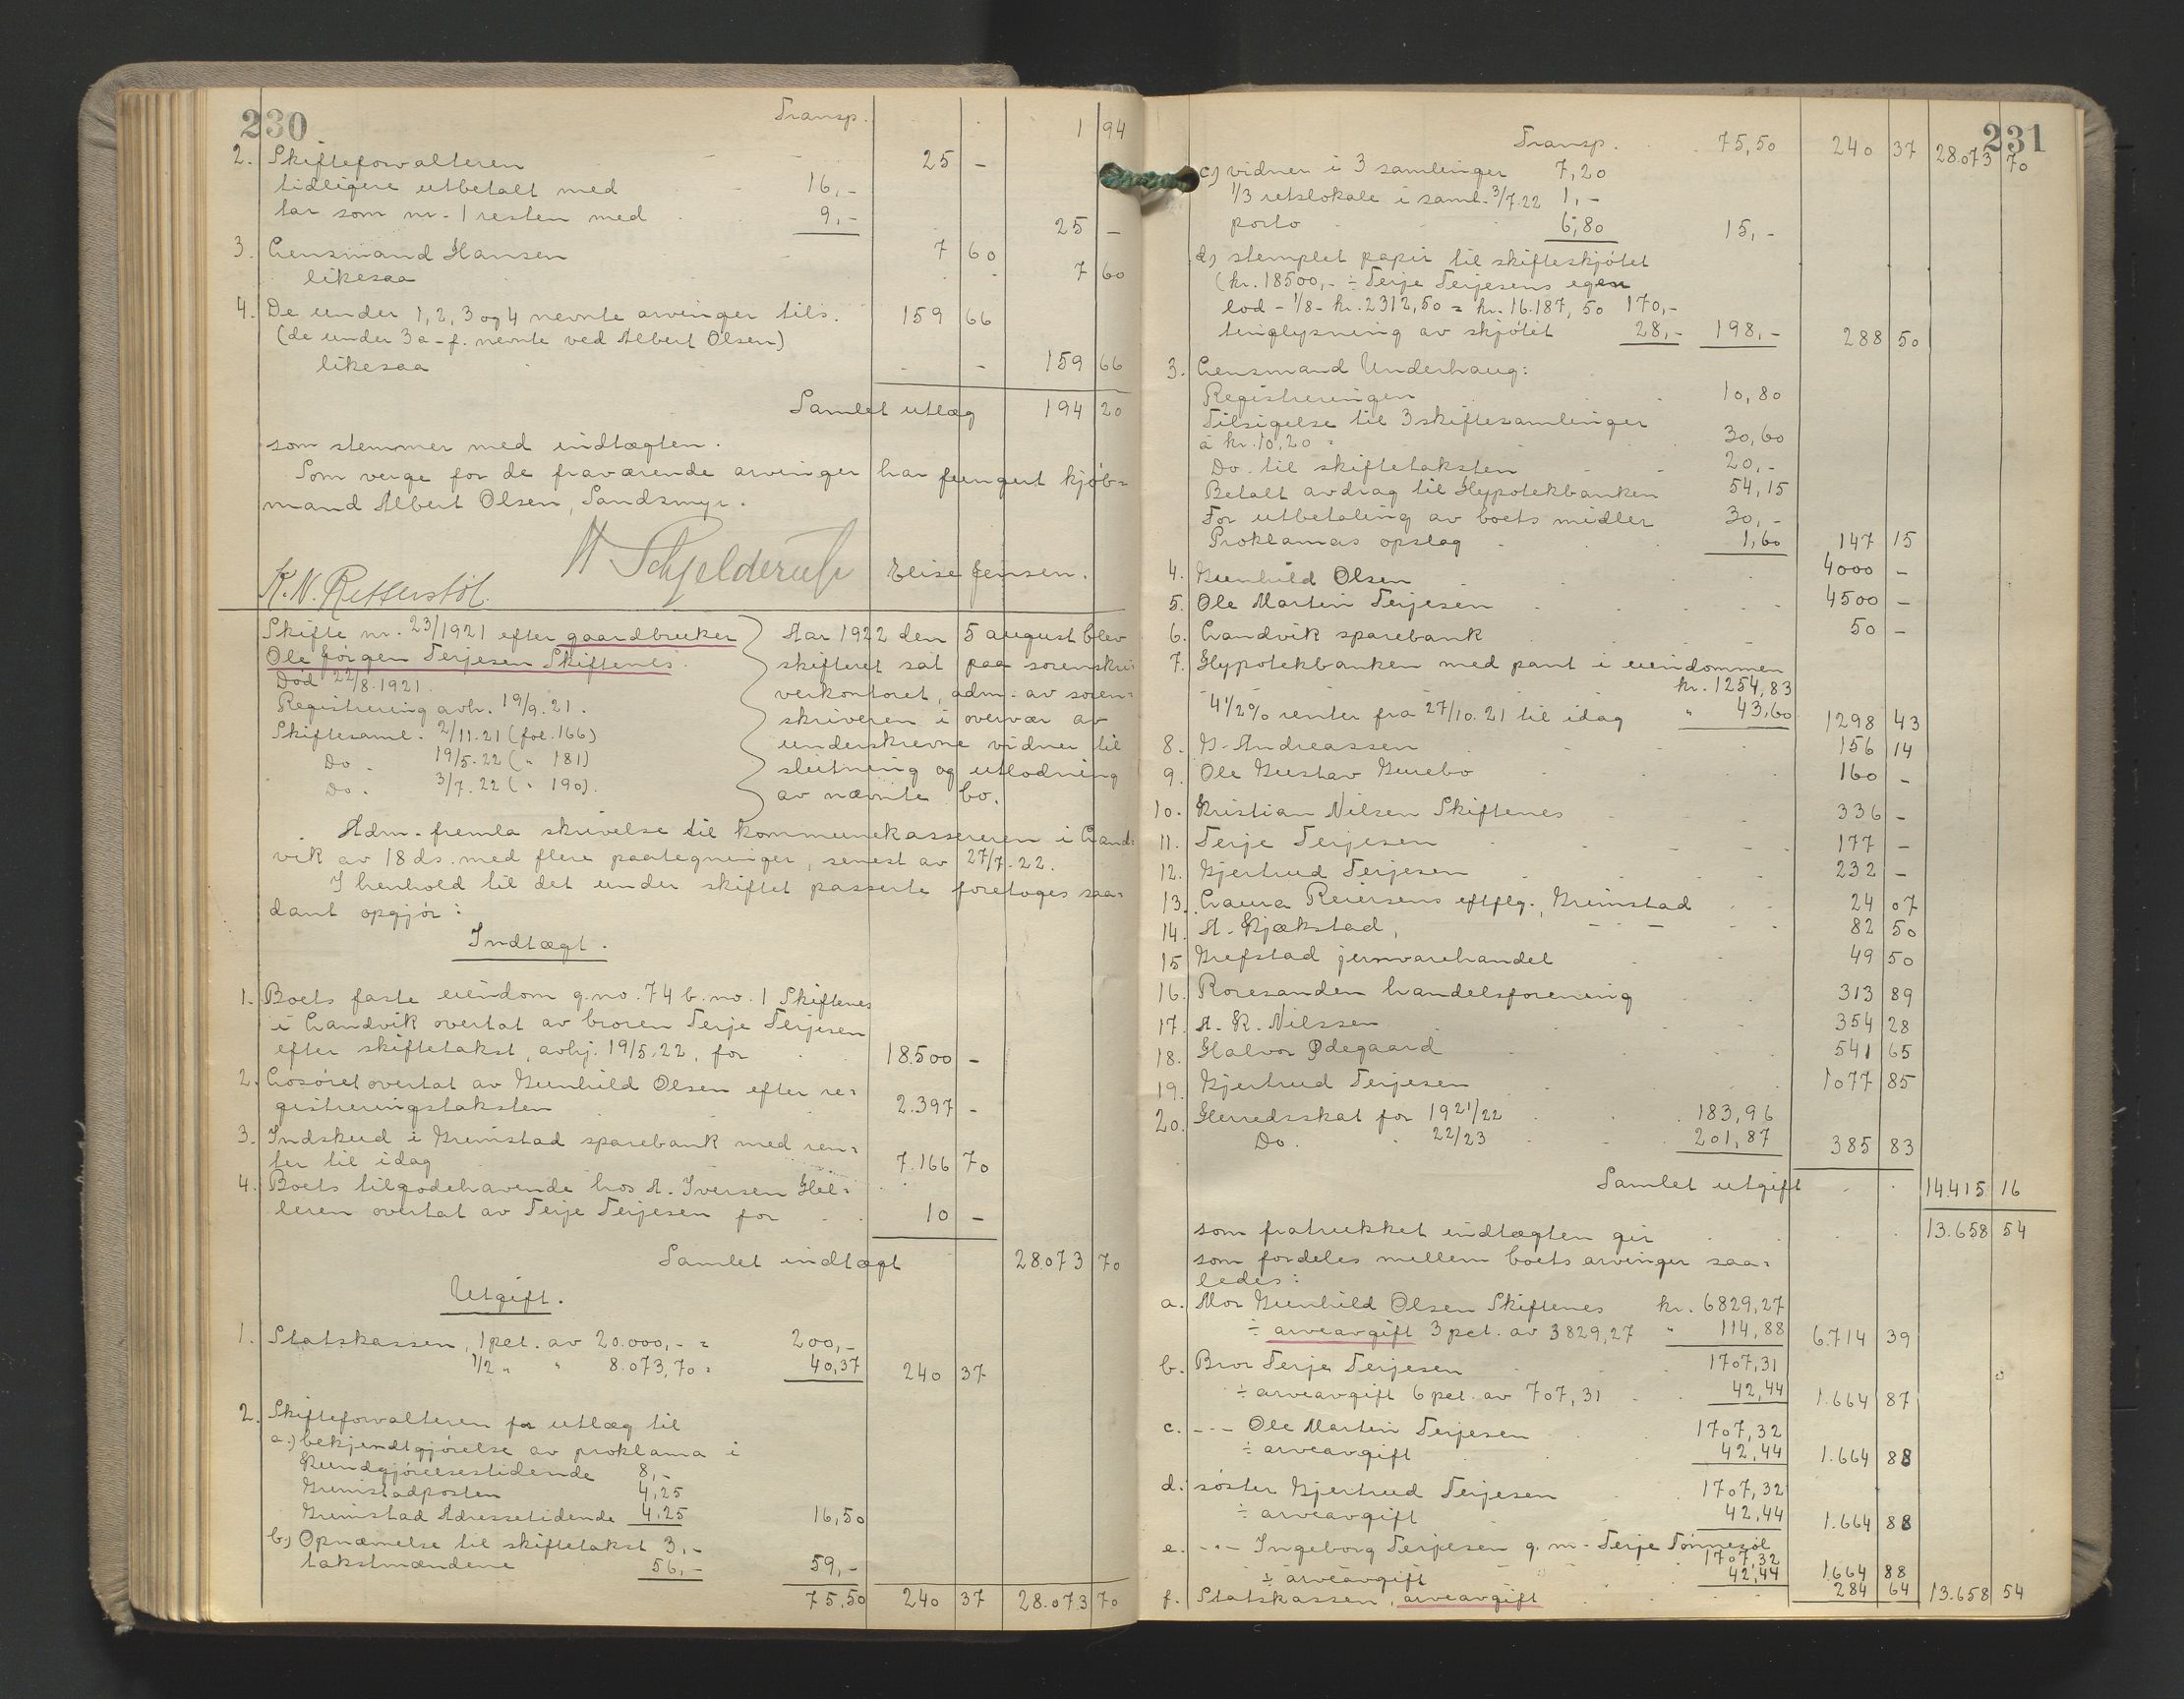 230
Transp. 1 94
2. Skifteforvalteren 25 –
tidligere utbetalt med 16,–
tar som nr. 1 resten med 9,– 25 –
3. Lensmand Hansen 7 60
likesaa 7 60
4. De under 1, 2, 3 og 4 nevnte arvinger tils. 159 66
(de under 3 a–f. nevnte ved Albert Olsen)
likesaa 159 66
Samlet utlæg 194 20
som stemmer med indtægten.
Som verge for de fraværende arvinger har fungert kjøb=
mand Albert Olsen, Sandsmyr.
K. N. Retterstøl. H Schjelderup Elise Jensen.
Skifte nr. 23/1921 efter gaardbruker
Ole Jørgen Terjesen Skiftenes.
Død 22/8.1921.
Registrering avh. 19/9.21.
Skiftesaml. 2/11.21 (fol. 166)
Do. 19/5.22 (" 181)
Do. 3/7.22 (" 190).
Aar 1922 den 5 august blev
skifteret sat paa sorenskri=
verkontoret, adm. av soren=
skriveren i overvær av
underskrevne vidner til
slutning og utlodning
av nævnte bo.
Adm. fremla skrivelse til kommunekassereren i Land=
vik av 18 ds. med flere paategninger, senest av 27/7.22.
I henhold til det under skiftet passerte foretoges saa=
dant opgjør:
Indtægt.
1. Boets faste eiendom g.no. 74 b.no. 1 Skiftenes
i Landvik overtat av broren Terje Terjesen
efter skiftetakst, avhj. 19/5.22, for 18.500 –
2. Løsøret overtat av Gunhild Olsen efter re=
gistreringstaksten 2.397 –
3. Indskud i Grimstad sparebank med ren=
ter til idag 7.166 70
4. Boets tilgodehavende hos A. Iversen Hel=
leren overtat av Terje Terjesen for 10 –
Samlet indtægt 28.073 70
Utgift.
1. Statskassen, 1 pct. av 20.000,– = 200,–
1/2 " " 8.073,70 = 40,37 240 37
2. Skifteforvalteren for utlæg til
a.) bekjendtgjørelse av proklama i
Kundgjørelsestidende 8,–
Grimstadposten 4,25
Grimstad Adressetidende 4,25 16,50
b) Opnævnelse til skiftetakst 3,–
takstmændene 56,– 59,–
75,50 240 37 28.073 70
231
Transp. 75,50 240 37 28.073 70
c) vidner i 3 samlinger 7,20
1/3 retslokale i saml. 3/7.22 1,–
porto 6,80 15,–
d) stemplet papir til skifteskjøtet
(kr. 18500,– ÷ Terje Terjesens egen
lod – 1/8 – kr. 2312,50 = kr. 16.187,50 170,–
tinglysning av skjøtet 28,– 198,– 288 50
3. Lensmand Underhaug:
Registreringen 10,80
Tilsigelse til 3 skiftesamlinger
à kr. 10,20 = 30,60
Do. til skiftetaksten 20,–
Betalt avdrag til Hypotekbanken 54,15
For utbetaling av boets midler 30,–
Proklamas opslag 1,60 147 15
4. Gunhild Olsen 4000 –
5. Ole Martin Terjesen 4500 –
6. Landvik sparebank 50 –
7. Hypotekbanken med pant i eiendommen
kr. 1254,83
4 1/2 % renter fra 27/10.21 til idag " 43,60 1298 43
8. G. Andreassen 156 14
9. Ole Gustav Gurebo 160 –
10. Kristian Nilsen Skiftenes 336 –
11. Terje Terjesen 177 –
12. Gjertrud Terjesen 232 –
13. Laura Reiersens eftflg., Grimstad 24 07
14. A. Kjækstad, 82 50
15 Grefstad jernvarehandel 49 50
16. Roresanden handelsforening 313 89
17. A. K. Nilssen 354 28
18. Halvor Ødegaard 541 65
19. Gjertrud Terjesen 1077 85
20. Herredsskat for 1921/22 183,96
Do. 22/23 201,87 385 83
Samlet utgift 14.415 16
som fratrukket indtægten gir 13.658 54
som fordeles mellem boets arvinger saa=
ledes:
a. Mor Gunhild Olsen Skiftenes kr. 6829,27
÷ arveavgift 3 pct. av 3829,27 " 114,88 6.714 39
b. Bror Terje Terjesen 1707,31
÷ arveavgift 6 pct. av 707,31 42,44 1.664 87
c. –"– Ole Martin Terjesen 1707,32
÷ arveavgift 42,44 1.664 88
d. søster Gjertrud Terjesen 1707,32
÷ arveavgift 42,44 1.664 88
e. –"– Ingeborg Terjesen g.m. Terje Tønnesøl
1707,32
÷ arveavgift 42,44 1.664 88
f. Statskassen, arveavgift 284 64 13.658 54